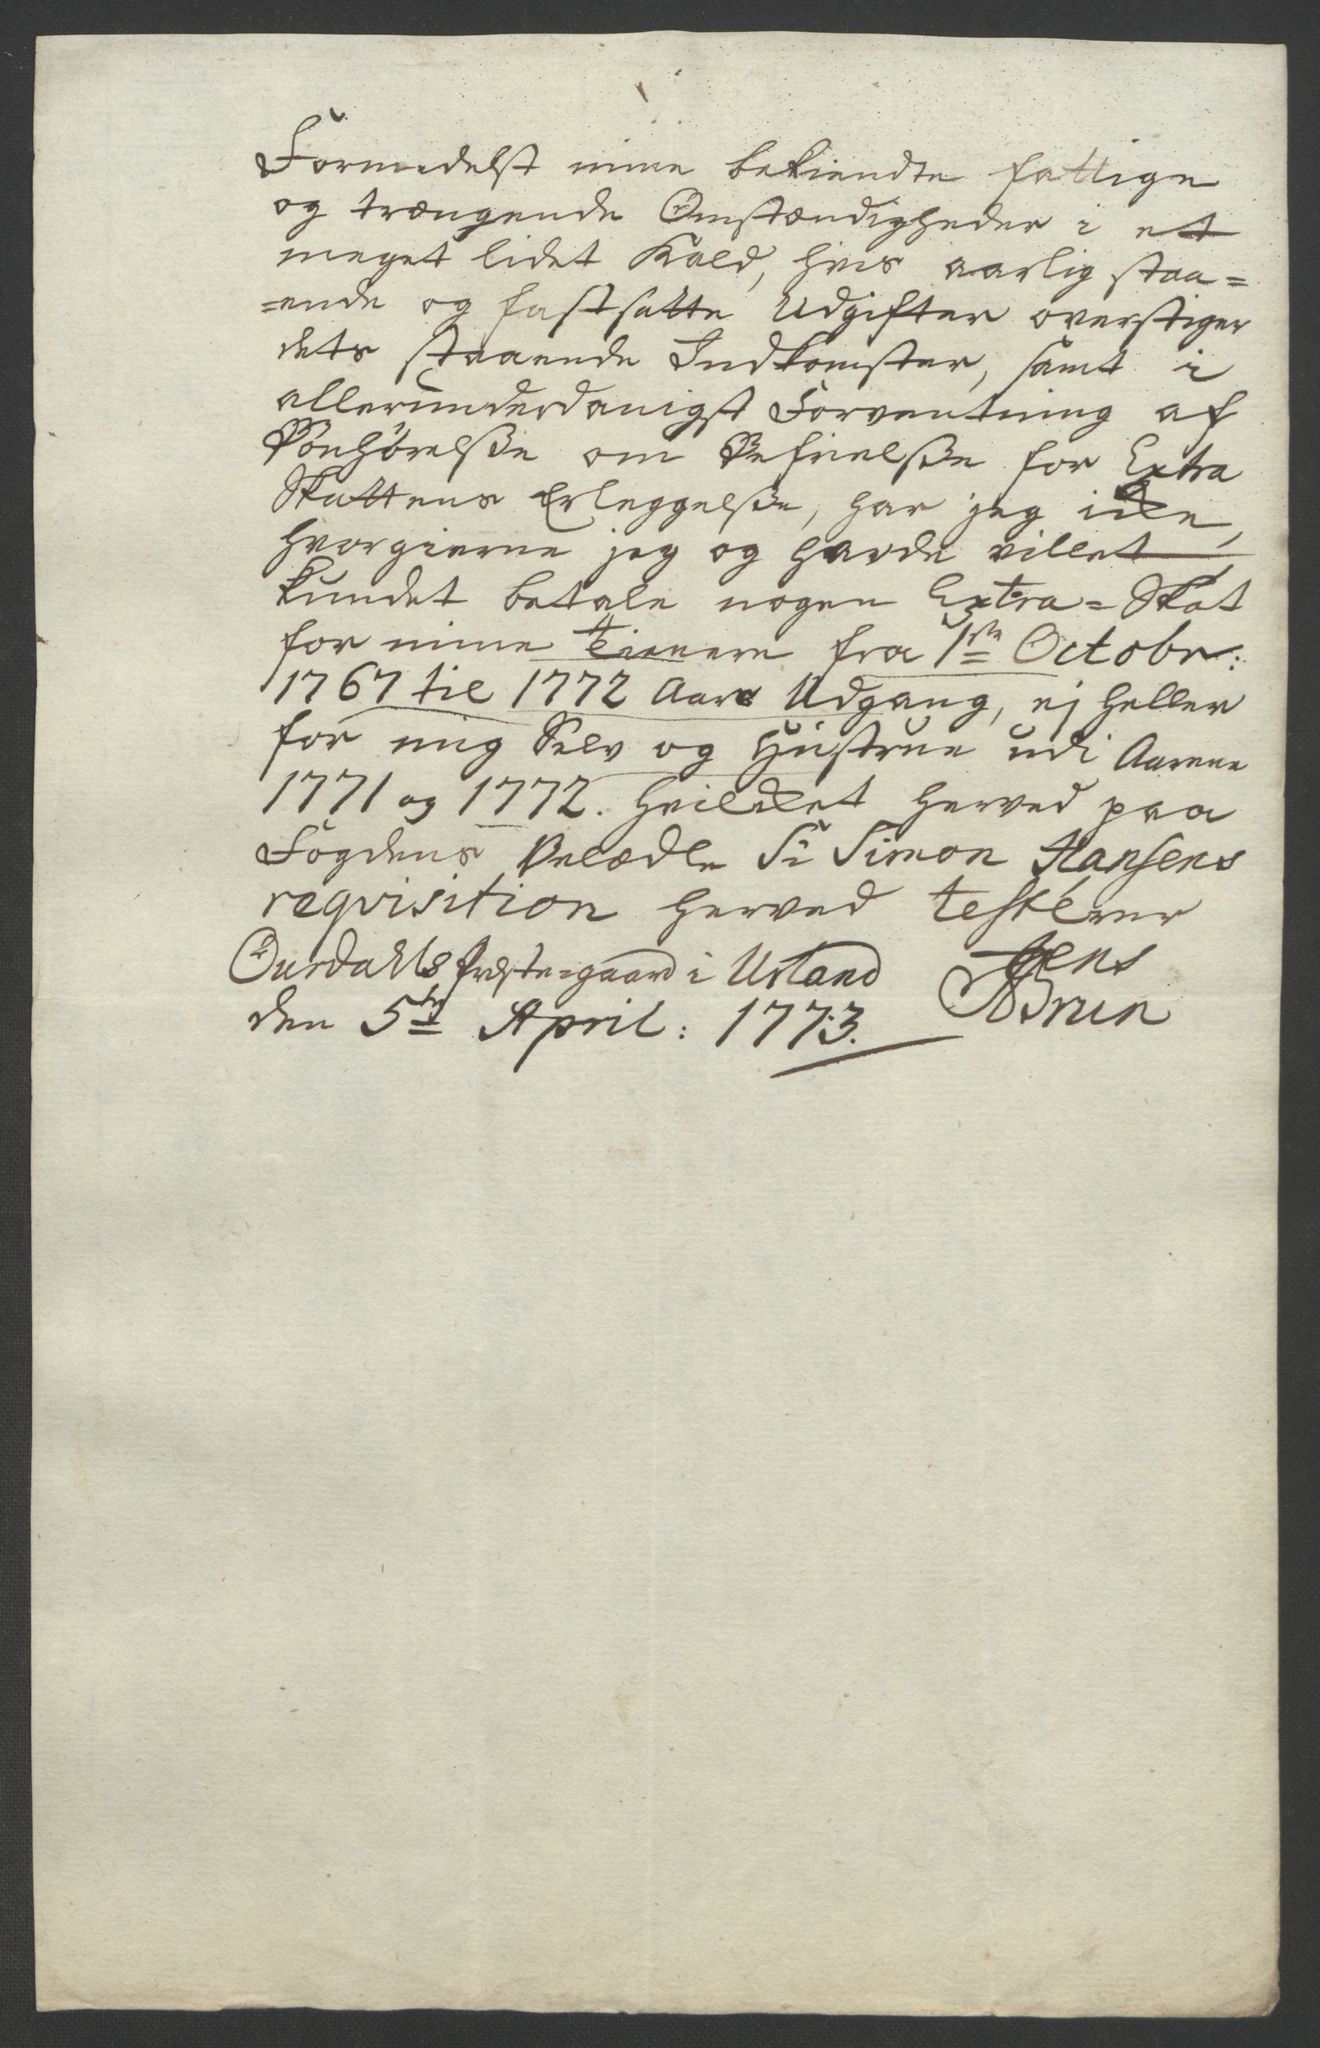 Formedelst mine bekiendte fattige
og trængende Omstændigheder i et
meget lidet Kald, hvis aarlig staa=
=ende og fastsatte Udgifter overstiger
dets staaende Indkomster, samt i
allerunderdanigst Forventning af
Bønhørelße om Befrielße for Extra
Skattens Erleggelße, har jeg icke,
hvorgierne jeg og havde villet,
kundet betale nogen Extra=Skat
for mine Tienere fra 1ste Octobr:
1767 til 1772 Aars Udgang, ej heller
for mig Selv og Hustrue udi Aarene
1771 og 1772. hvilcket herved paa
Fogdens Velædle Sr Simon Hansens
reqvisition herved testerer
Ourdahls Præste=gaard i Urland Jens
den 5te April: 1773. Brun